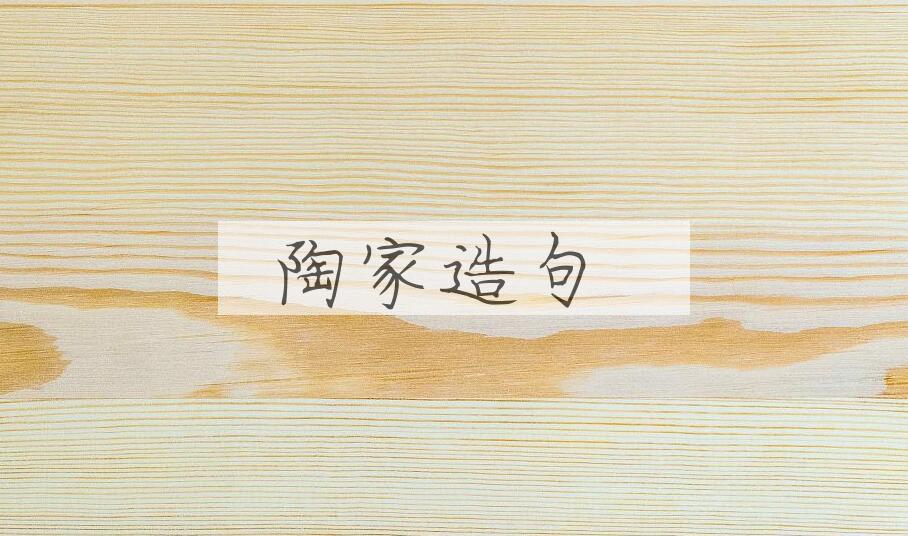 陶家造句